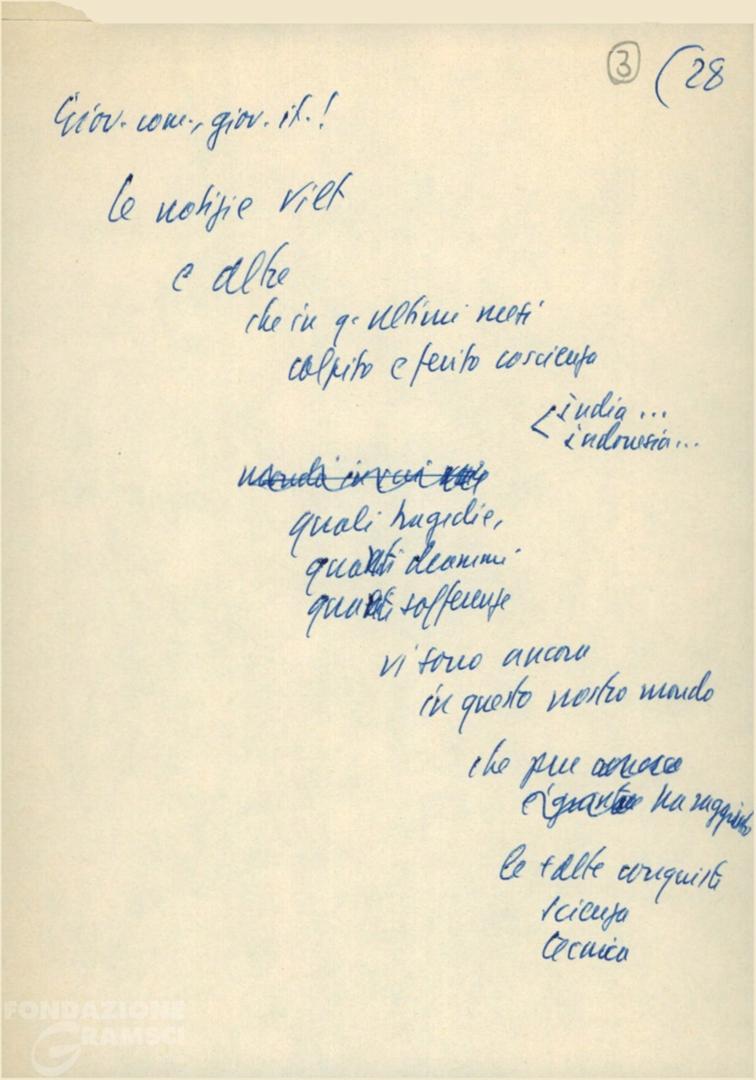 ③ (28
Giov. com., giov. it.!
le notizie Viet
e altre
che in q. ultimi mesi
colpito e ferito coscienza
< india ...
indonesia ...
quali tragedie,
quanti drammi
quante sofferenze
vi sono ancora
in questo nostro mondo
che pure
ha raggiunto
le + alte conquiste
scienza
tecnica
FONDAZIONE
GRAMSCI